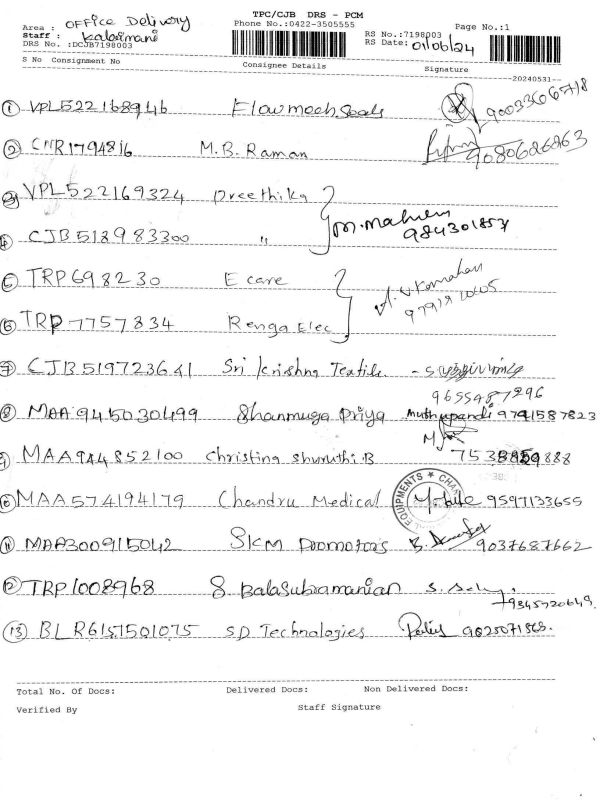 TPC/CJB DRS - PCM
Area : OFFICE Delivery Phone No.:0422-3505555 Page No.:1
Staff : Kalaimani RS No.:7198003
DRS No. :DCJB7198003 RS Date: 01/06/24
S No Consignment No Consignee Details Signature
20240531
① VPL522168946 Flowmech Seals 9003366718
② CNR1794816 M.B. Raman 9080626863
③ VPL522169324 Preethika
M. Mahen
④ CJB518983300 " 984301857
⑤ TRP698230 E care
⑥ TRP7757834 Renga Elec
⑦ CJB519723641 Sri Krishna Textile
9655487296
⑧ MAA945030499 Shanmuga Priya muthupandi 9741587823
⑨ MAA944852100 Christina Shuruthi B
⑩ MAA574194179 Chandru Medical Mobile 9597133655
EQUIPMENTS ★ CHA
⑪ MAA300915042 SKM Promotors 9037687662
⑫ TRP1008968 S Balasubramanian
9345720649
⑬ BLR6151501075 SD Technologies
Total No. Of Docs: Delivered Docs: Non Delivered Docs:
Verified By Staff Signature